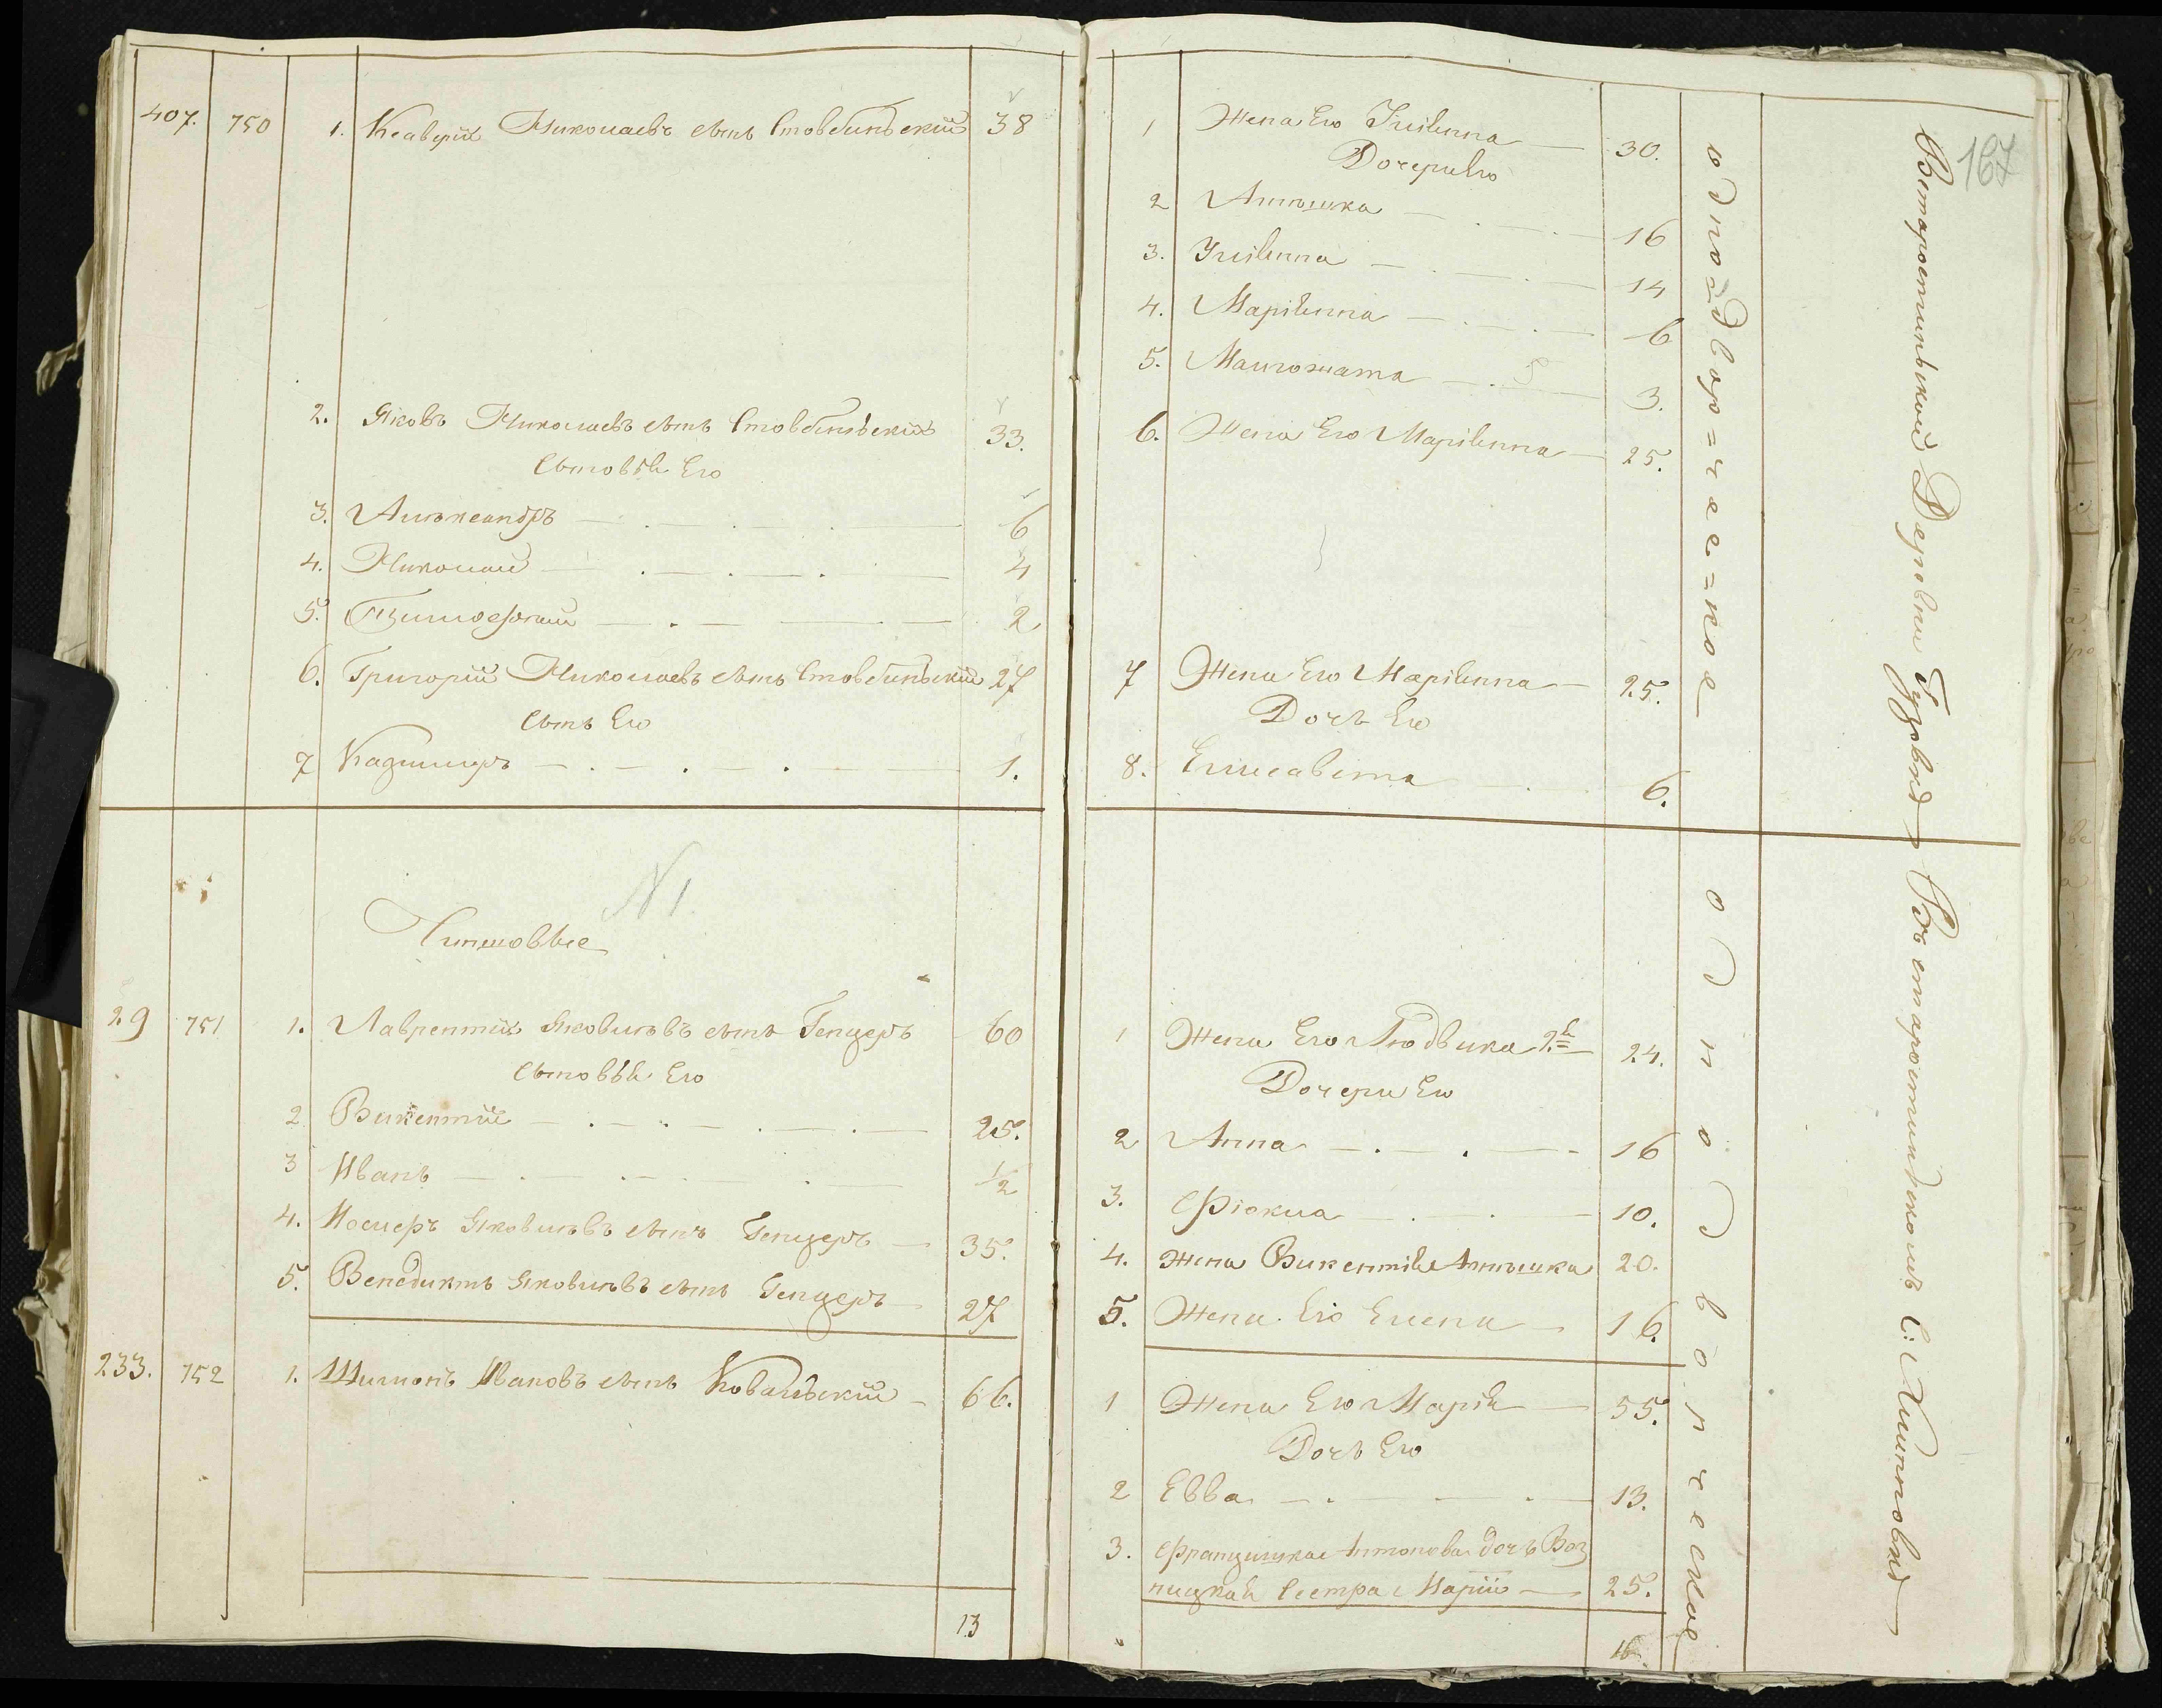 407. 750 1. Ксаверiй Николаевъ сынъ Стовбинскiй 38
2. Яковъ Николаевъ сынъ Стовбинскiй 33.
Сыновья Его
3. Александръ 6
4. Николай 4
5. Тимофтей 2
6. Григорiй Николаевъ сынъ Стовбинскiй 27
Сынъ Его
7 Казимиръ 1.
N 1.
Чиншовые
29 751 1. Лаврентiй Яковлевъ сынъ Генцеръ 60
Сыновья Его
2 Викентiй 25.
3 Иванъ 1/2
4. Iосифъ Яковлевъ сынъ Генцеръ 35.
5. Венедиктъ Яковлевъ сынъ Генцеръ 27
233. 752 1. Шимонъ Ивановъ сынъ Ковальскiй 66.
13
167
1 Жена Его Юлiянна 30.
Дочери Его
2 Аннышка 16
3. Юлiянна 14
4. Марiянна 6
5. Малгожата 3.
6. Жена Его Марiянна 25.
7 Жена Его Марiянна 25.
Дочь Его
8. Елисавета 6.
1 Жена Его Людвика 2я 24.
Дочери Его
2 Анна 16
3. Фiокла 10.
4. Жена Викентiя Аннышка 20.
5. Жена Его Елена 16.
1 Жена Его Марiя 55.
Дочь Его
2 Евва 13.
3. Францишка Антонова дочь Воз
ницкая Сестра Марiи 25.
16.
однодвор=чес=кое
однодворческое
Встаростинской Деревни Гуровка